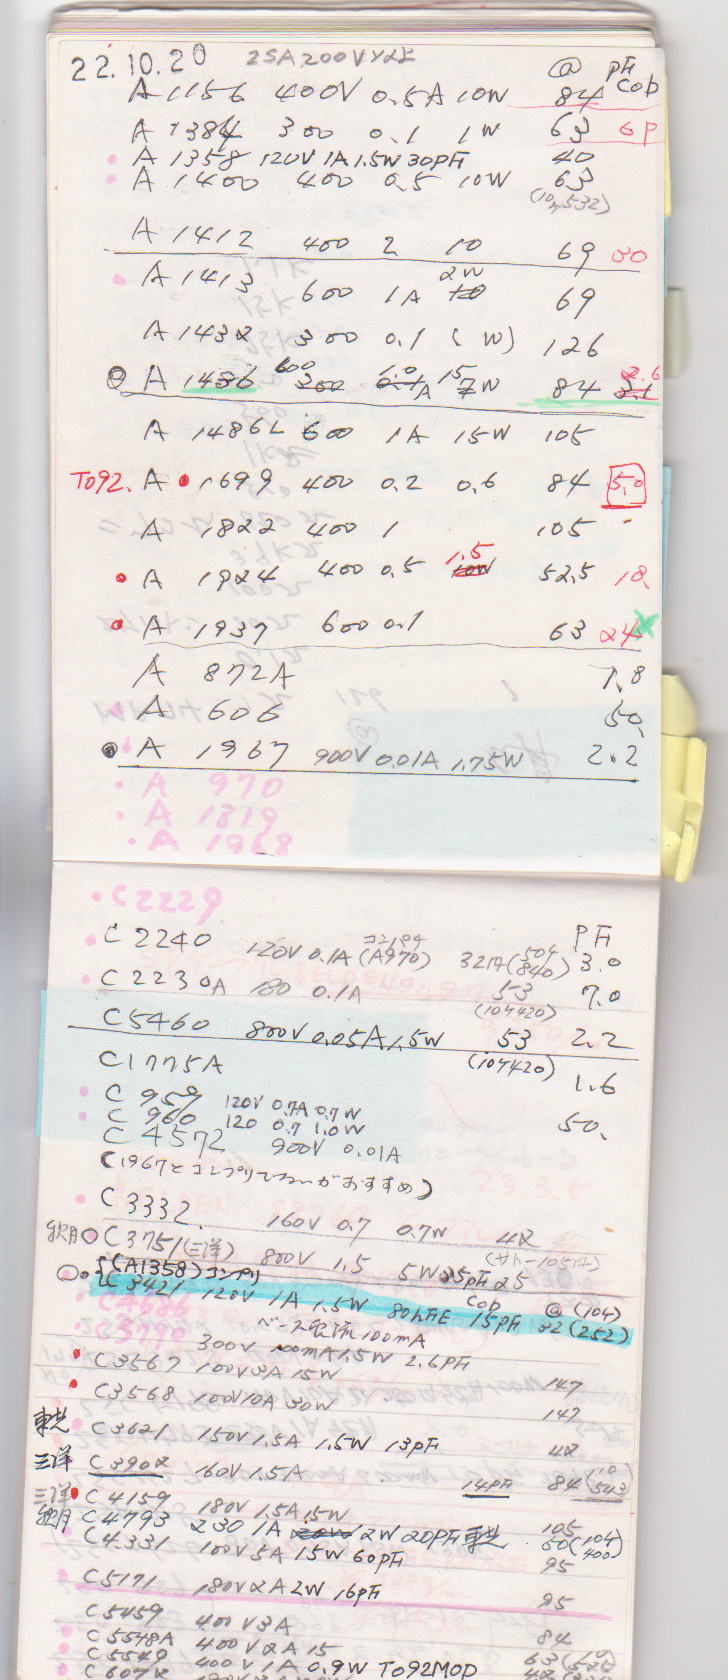 22.10.20 2SA200V以上 @ PF
A 1156 400V 0.5A 10W 84 Cob
A 1384 300 0.1 1W 63 6P
・A 1358 120V 1A 1.5W 30PF 40
・A 1400 400 0.5 10W 63
A 1412 400 2 10 69 30
・A 1413 600 1A 2W 69
A 1432 300 0.1 ( W) 126
A 1436 600 1.0 A 15 W 84 2.6
A 1486L 600 1A 15W 105
TO92. A ・1699 400 0.2 0.6 84 5.0
A 1822 400 1 105
・A 1924 400 0.5 1.5 52.5 18.
・A 1937 600 0.1 63 24
A 872A 1.8
A 606 50.
・A 1967 900V 0.01A 1.75W 2.2
・A 970
・A 1319
・A 1968
・C2229 PF
・C 2240 120V 0.1A (A970) コンプリ 3.0
・C 2230A 180 0.1A 53 7.0
(107420)
C5460 800V 0.05A 1.5W 53 2.2
(107420)
C1775A 1.6
・C 959 120V 0.7A 0.7W
・C 960 120 0.7 1.0W 50.
C 4572 900V 0.01A
・C 3332 160V 0.7 0.7W 42
C3751(三洋) 800V 1.5 5W 25PF 25
(A1358)コンプリ
C3421 120V 1A 1.5W 80hFE Cob 15PF @(104) 32(252)
ベース電流100mA
300V 1.5W 2.6PF
・C3567 100V3A 15W 147
・C3568 100V10A 30W 147
東芝 C3621 150V 1.5A 1.5W 13PF 42
三洋 C3902 160V 1.5A 14PF 84
三洋・C 4159 180V 1.5A 15W 105
C4793 230 1A 2W 20PF 東芝 50(104400)
C4331 100V 5A 15W 60PF 95
・C5171 180V2A2W 16PF 95
C5459 400V3A 84
C5548A 400V2A 15
C5549 400V 1A 0.9W TO92MOD